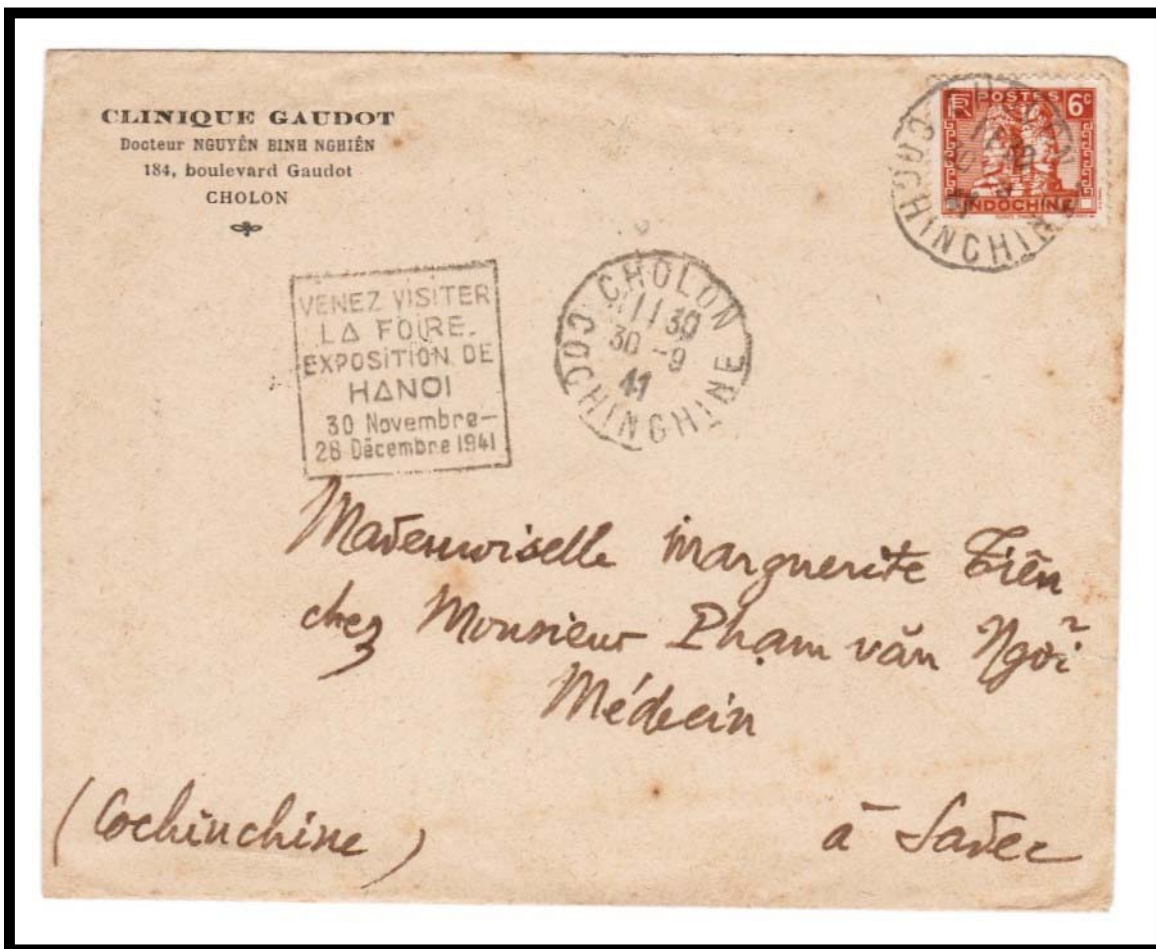 CLINIQUE GAUDOT
Docteur NGUYÊN BINH NGHIÊN
184, boulevard Gaudot
CHOLON
RF POSTES 6c
INDOCHINE
COCHINCHINE
VENEZ VISITER
LA FOIRE-
EXPOSITION DE
HANOI
30 Novembre-
28 Décembre 1941
CHOLON
11 30
30 -9
41
COCHINCHINE
Mademoiselle Marguerite Tiên
chez Monsieur Phạm văn Ngỡi
Médecin
à Sadec
(Cochinchine)